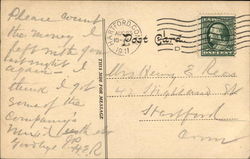 Please count
the money I
left with you
last night
again — I
think I got
some of the
Company's
Mixed with
H.E.R.
THIS SIDE FOR MESSAGE
HARTFORD, CONN.
1911
Post Card
Mrs Henry E Rees
Hartford
Conn